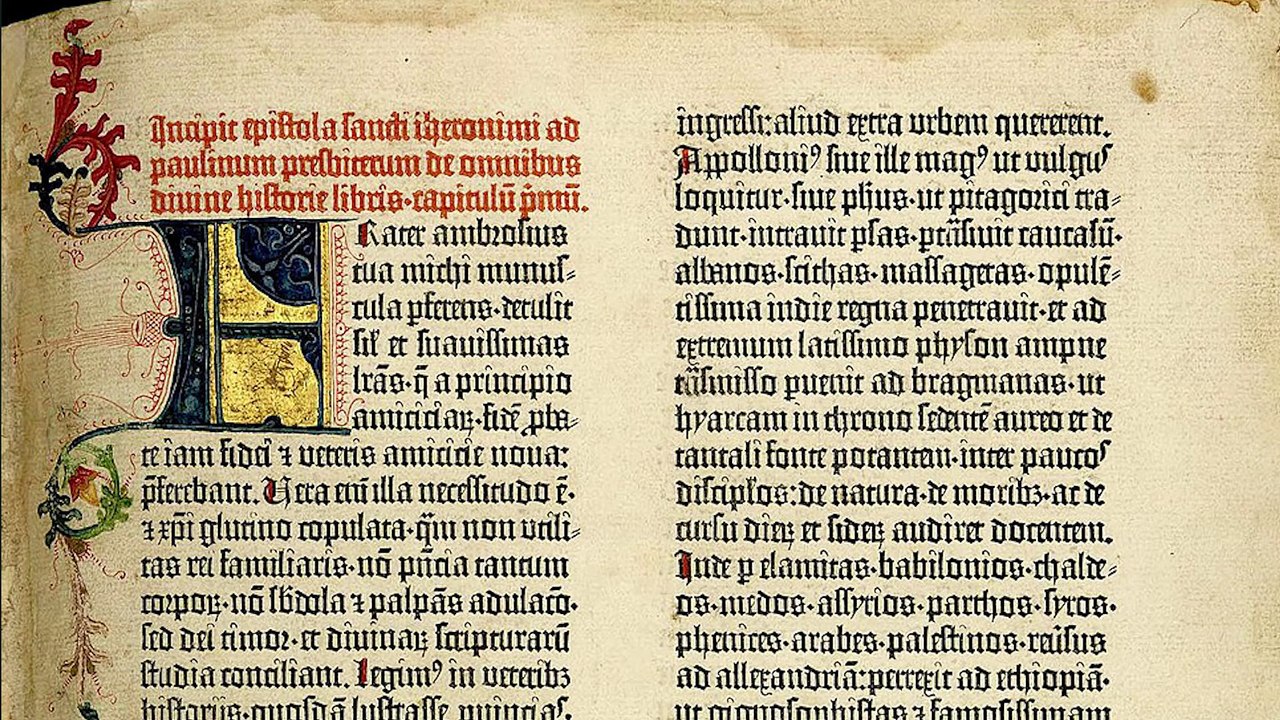 Incipit epistola sancti iheronimi ad
paulinum presbiterum de omnibus
divine historie libris·capitulū p̄mū.
Frater ambrosius
tua michi munus-
cula ꝑferens·detulit
sil̄ et suavissimas
lr̄as·q̄ a principio
amiciciaꝝ·fidē ꝓba-
te iam fidei ⁊ veteris amicicie nova:
p̄ferebant. Vera eni̅ illa necessitudo ē·
⁊ xp̄i glutino copulata·qm̄ non utili-
tas rei familiaris·nō pn̄cia tantum
corpoꝝ·nō sb̄dola ⁊ palpās adulac̄o·
sed dei timor·et divinaꝝ scripturarū
studia conciliant. Legimꝰ in veteribꝫ
historijs·quosdā lustrasse ꝓuincias.
ingressi:aliud extra urbem quererent.
Appolloniꝰ sive ille magꝰ ut vulgus
loquitur·sive ph̄us·ut pitagorici tra-
dunt·intravit ꝑsas·ptrāsivit caucasū·
albanos·scithas·massagetas·opulē-
tissima indie regna penetravit·et ad
extremum latissimo physon ampne
trāsmisso ꝑuenit ad bragmanas·ut
hyarcam in throno sedentē aureo et de
tantali fonte potantem·inter paucos
discipl̄os:de natura·de moribꝫ·ac de
cursu dieꝝ et sideꝝ audiret docentem.
Inde ꝑ elamitas·babilonios·chalde-
os·medos·assyrios·parthos·syros·
phenices·arabes·palestinos·reūsus
ad allexandriā:perrexit ad ethiopiā·
ut gignosophistas ⁊ famosissimam